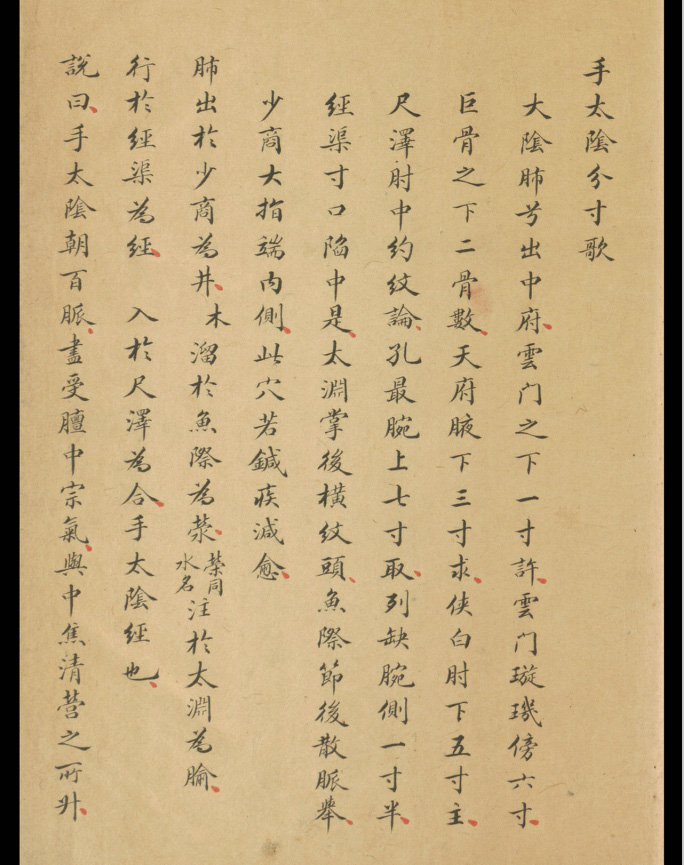 手太陰分寸歌
大陰肺兮出中府、雲门之下一寸許、雲门璇璣傍六寸、
巨骨之下二骨數、天府腋下三寸求、侠白肘下五寸主、
尺澤肘中約紋論、孔最腕上七寸取、列缺腕側一寸半、
經渠寸口陷中是、太淵掌後橫紋頭、魚際節後散脈舉、
少商大指端内側、此穴若鍼疾減愈、
肺出於少商為井、木溜於魚際為荥、榮同水名注於太淵為腧、
行於經渠為經、入於尺澤為合、手太陰經也、
說曰、手太陰朝百脈、盡受膻中宗氣、與中焦清營之所升、